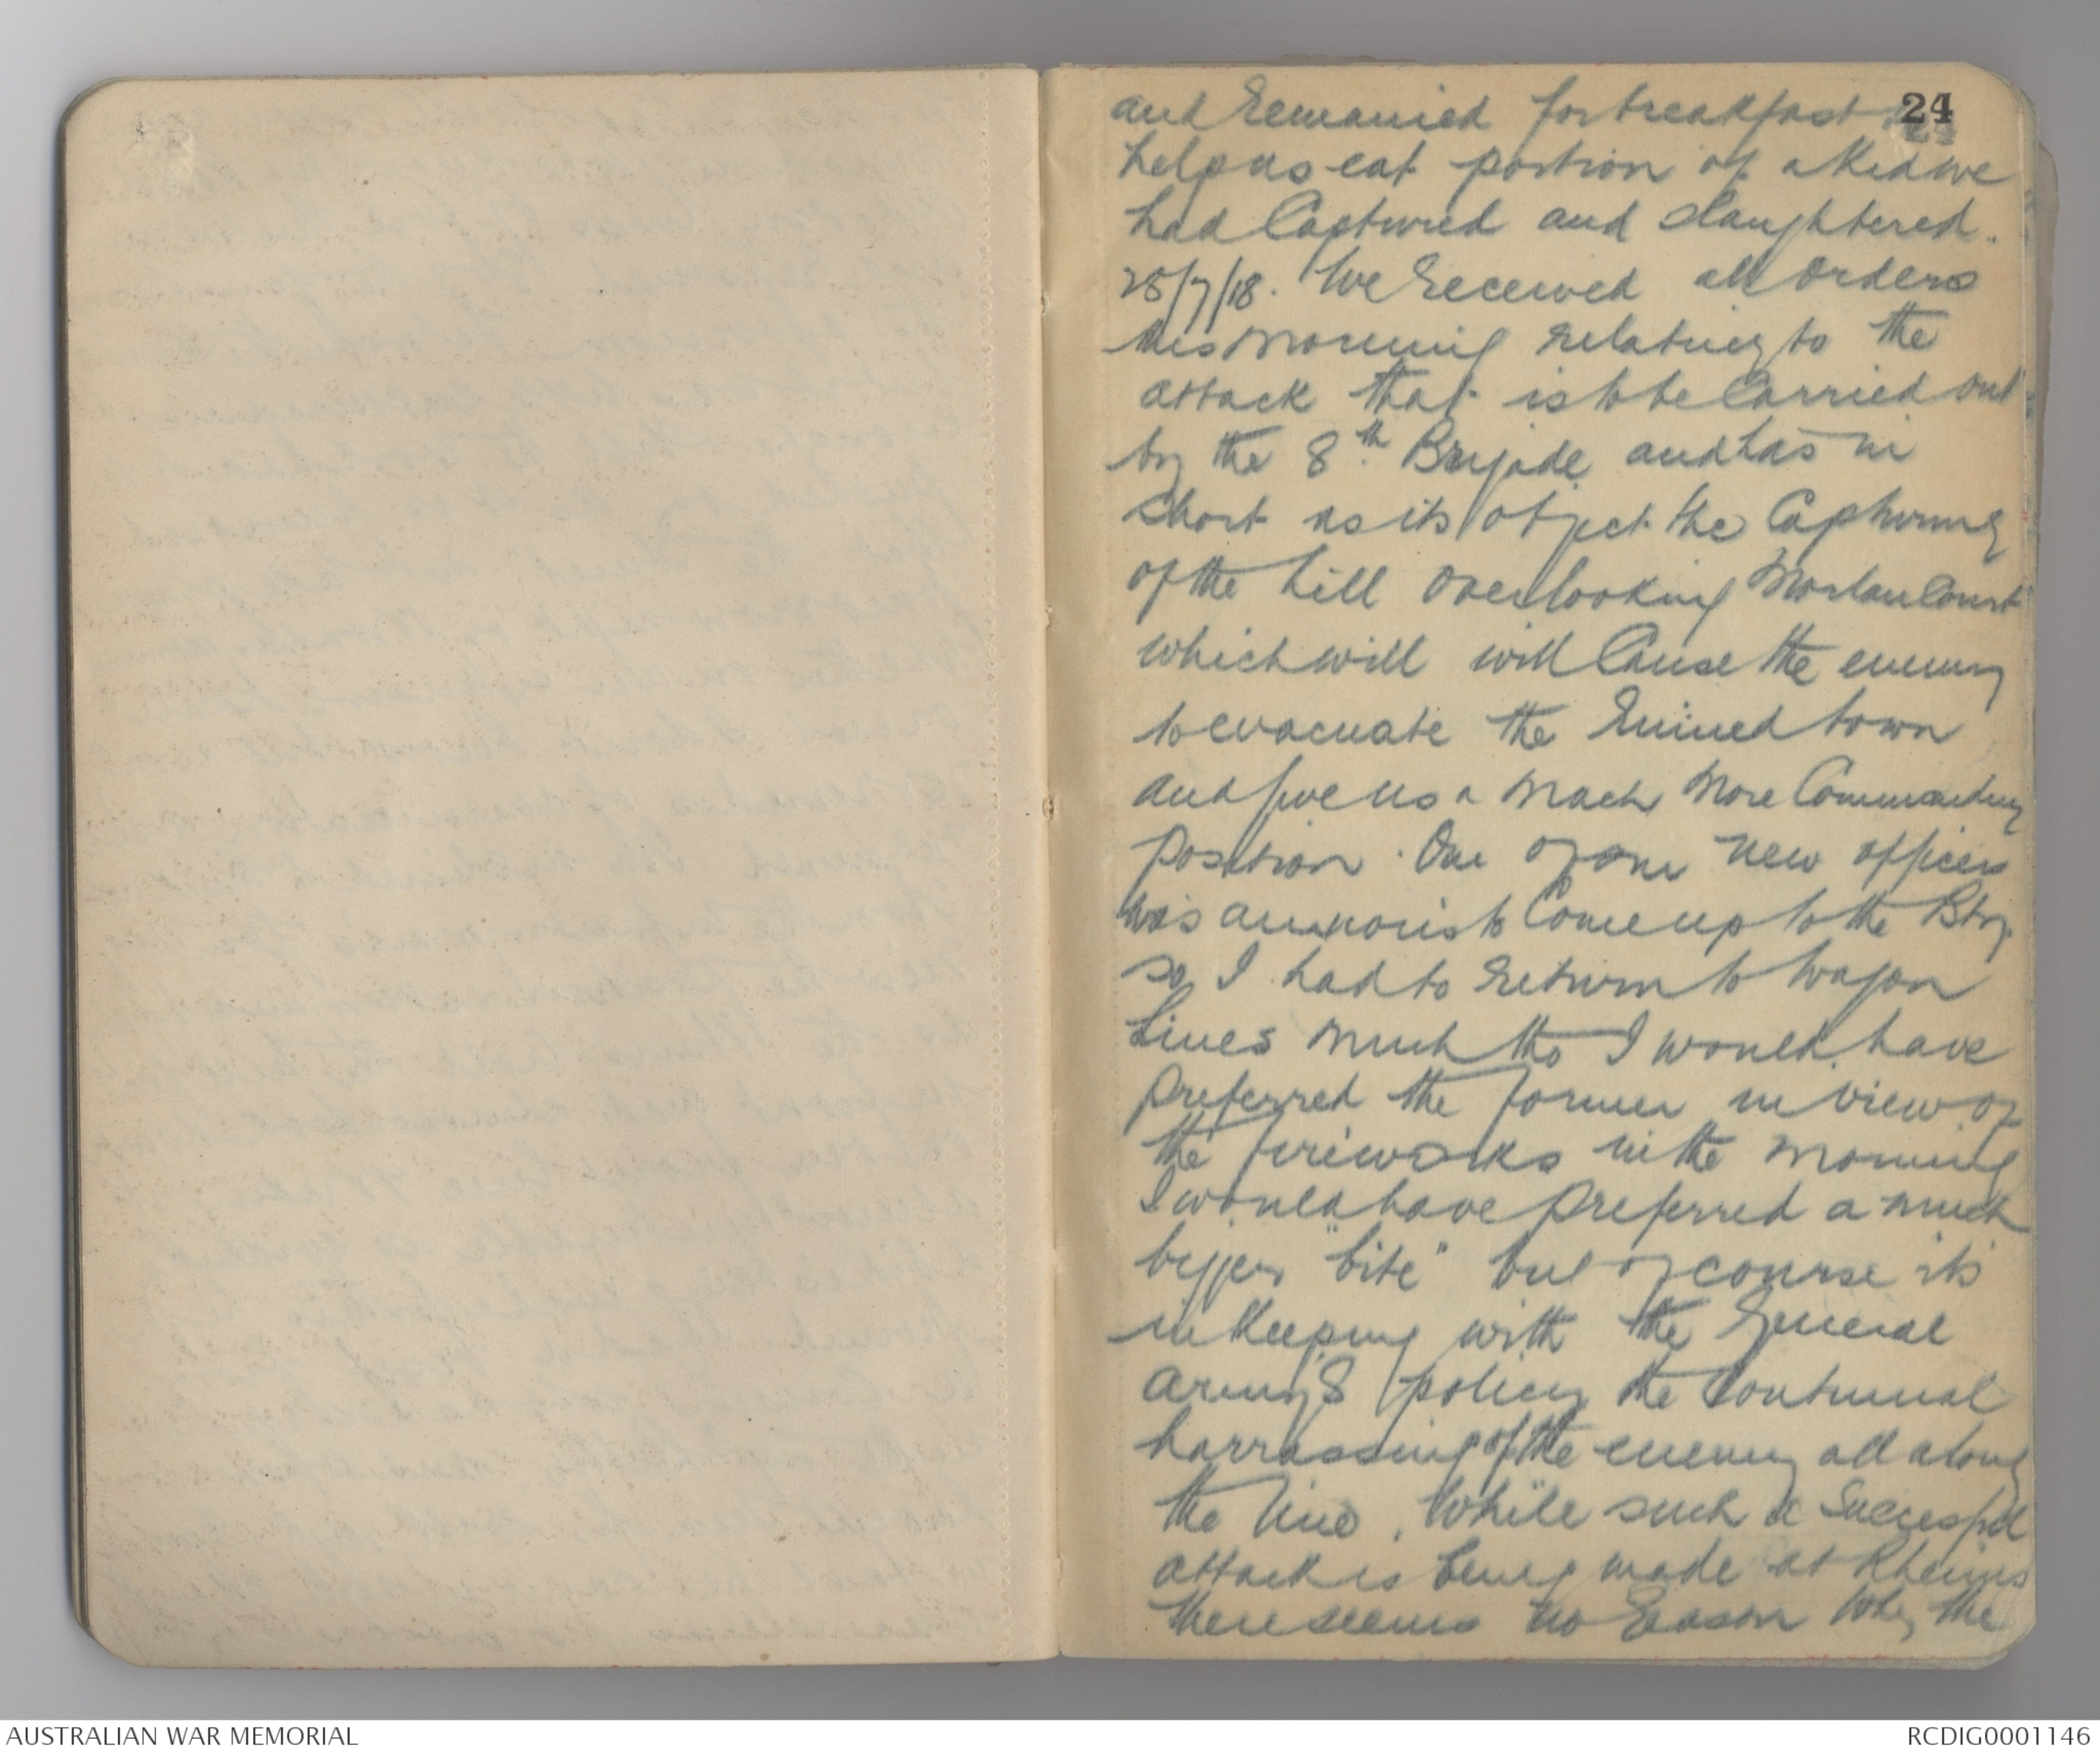 24
and remained for breakfast to
help us eat portion of a Kid we
had Captured and slaughtered.
28/7/18. We received all orders
this morning relating to the
attack that is to be Carried out
by the 8th Brigade and has in
short as its object the Capturing
of the hill overlooking Morlancourt
which will will Cause the enemy
to evacuate the ruined town
and give us a much more Commanding
position. One of our new officers
was anxious to Come up to the Bty.
so I had to return to Wagon
Lines much tho I would have
preferred the former in view of
the fireworks in the morning
I would have preferred a much
bigger "bite" but of course its
in Keeping with the General
army's policy the Continual
harrassing of the enemy all along
the line. While such a Successful
attack is being made at Rheims
there seems no reason why the
AUSTRALIAN WAR MEMORIAL
RCDIG0001146